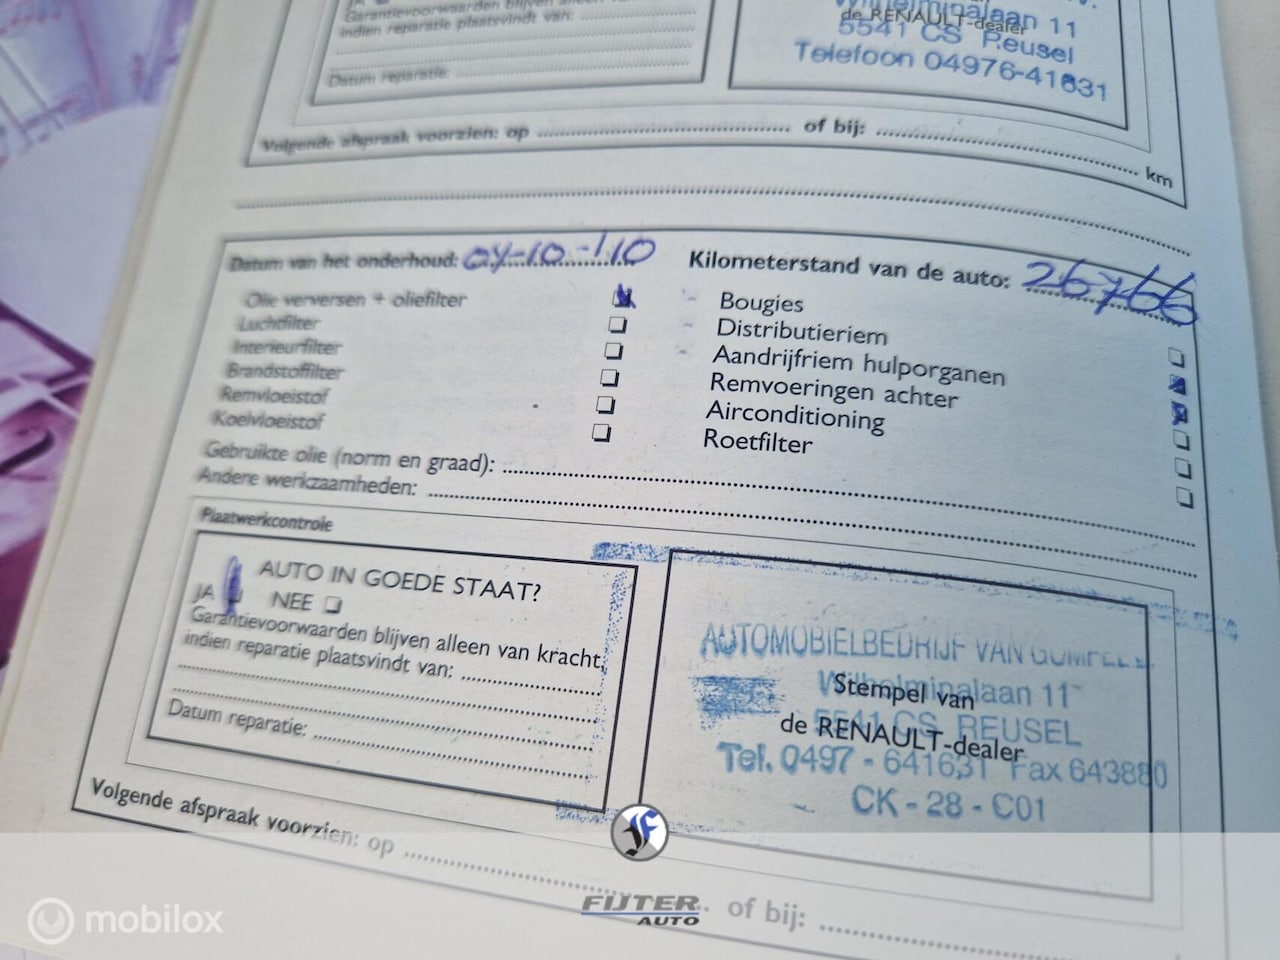 Garantievoorwaarden blijven alleen van
indien reparatie plaatsvindt van:
Datum reparatie:
Wilhelminalaan 11
de RENAULT-dealer
5541 CS Reusel
Telefoon 04976-41631
Volgende afspraak voorzien: op of bij: km
Datum van het onderhoud: 04-10-'10 Kilometerstand van de auto: 26766
Olie verversen + oliefilter
Luchtfilter
Interieurfilter
Brandstoffilter
Remvloeistof
Koelvloeistof
Bougies
Distributieriem
Aandrijfriem hulporganen
Remvoeringen achter
Airconditioning
Roetfilter
Gebruikte olie (norm en graad):
Andere werkzaamheden:
Plaatwerkcontrole
AUTO IN GOEDE STAAT?
JA NEE
Garantievoorwaarden blijven alleen van kracht,
indien reparatie plaatsvindt van:
Datum reparatie:
AUTOMOBIELBEDRIJF VAN GOMPEL
Wilhelminalaan 11
Stempel van
5541 CS REUSEL
de RENAULT-dealer
Tel. 0497 - 641631 Fax 643880
CK - 28 - C01
Volgende afspraak voorzien: op of bij:
FIJTER
AUTO
mobilox